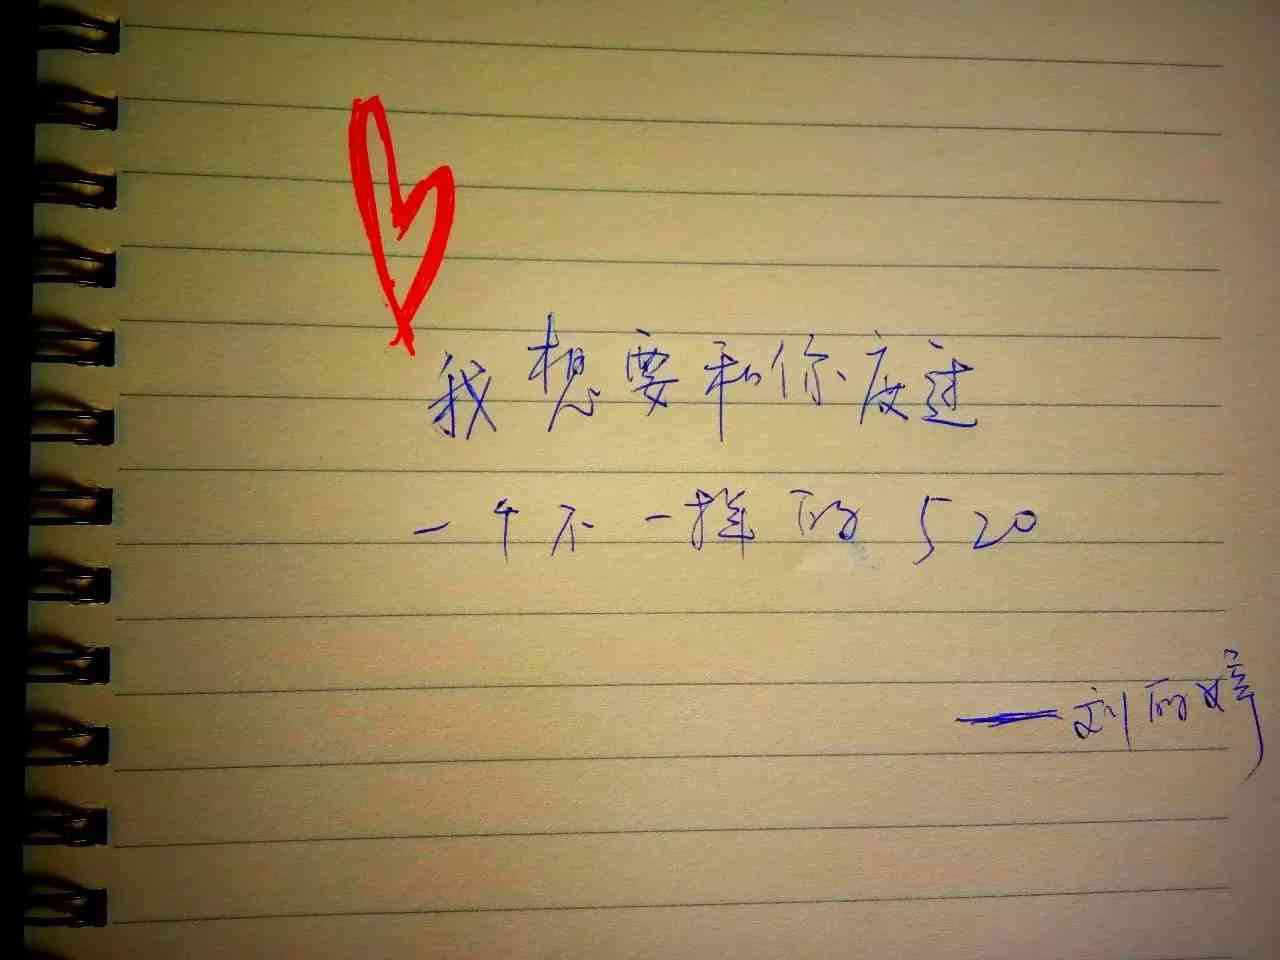 我想要和你度过
一个不一样的520
——刘的婷